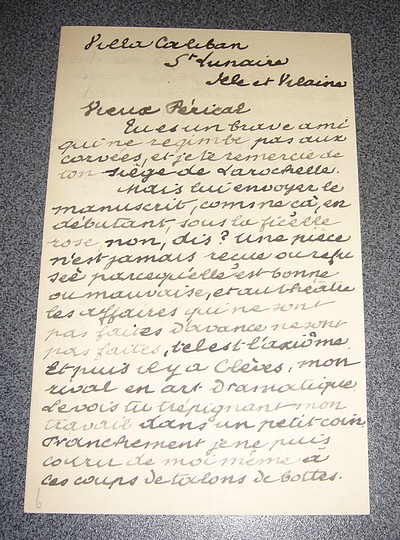 Villa Caliban
St Lunaire
Ille et Vilaine
Vieux Pérical
Tu es un brave ami
qui ne regimbe pas aux
corvées, et je te remercie de
ton siège de Larochelle.
Mais lui envoyer le
manuscrit, comme çà, en
débutant, sous la ficelle
rose, non, dis? Une pièce
n'est jamais reçue ou refu
sée parcequ'elle est bonne
ou mauvaise, et au théâtre
les affaires qui ne sont
pas faites d'avance ne sont
pas faites, tel est l'axiôme.
Et puis il y a Clèves, mon
rival en art dramatique
Le vois tu trépignant mon
travail dans un petit coin
Franchement je ne puis
de moi même à
ces coups de talons de bottes.
6